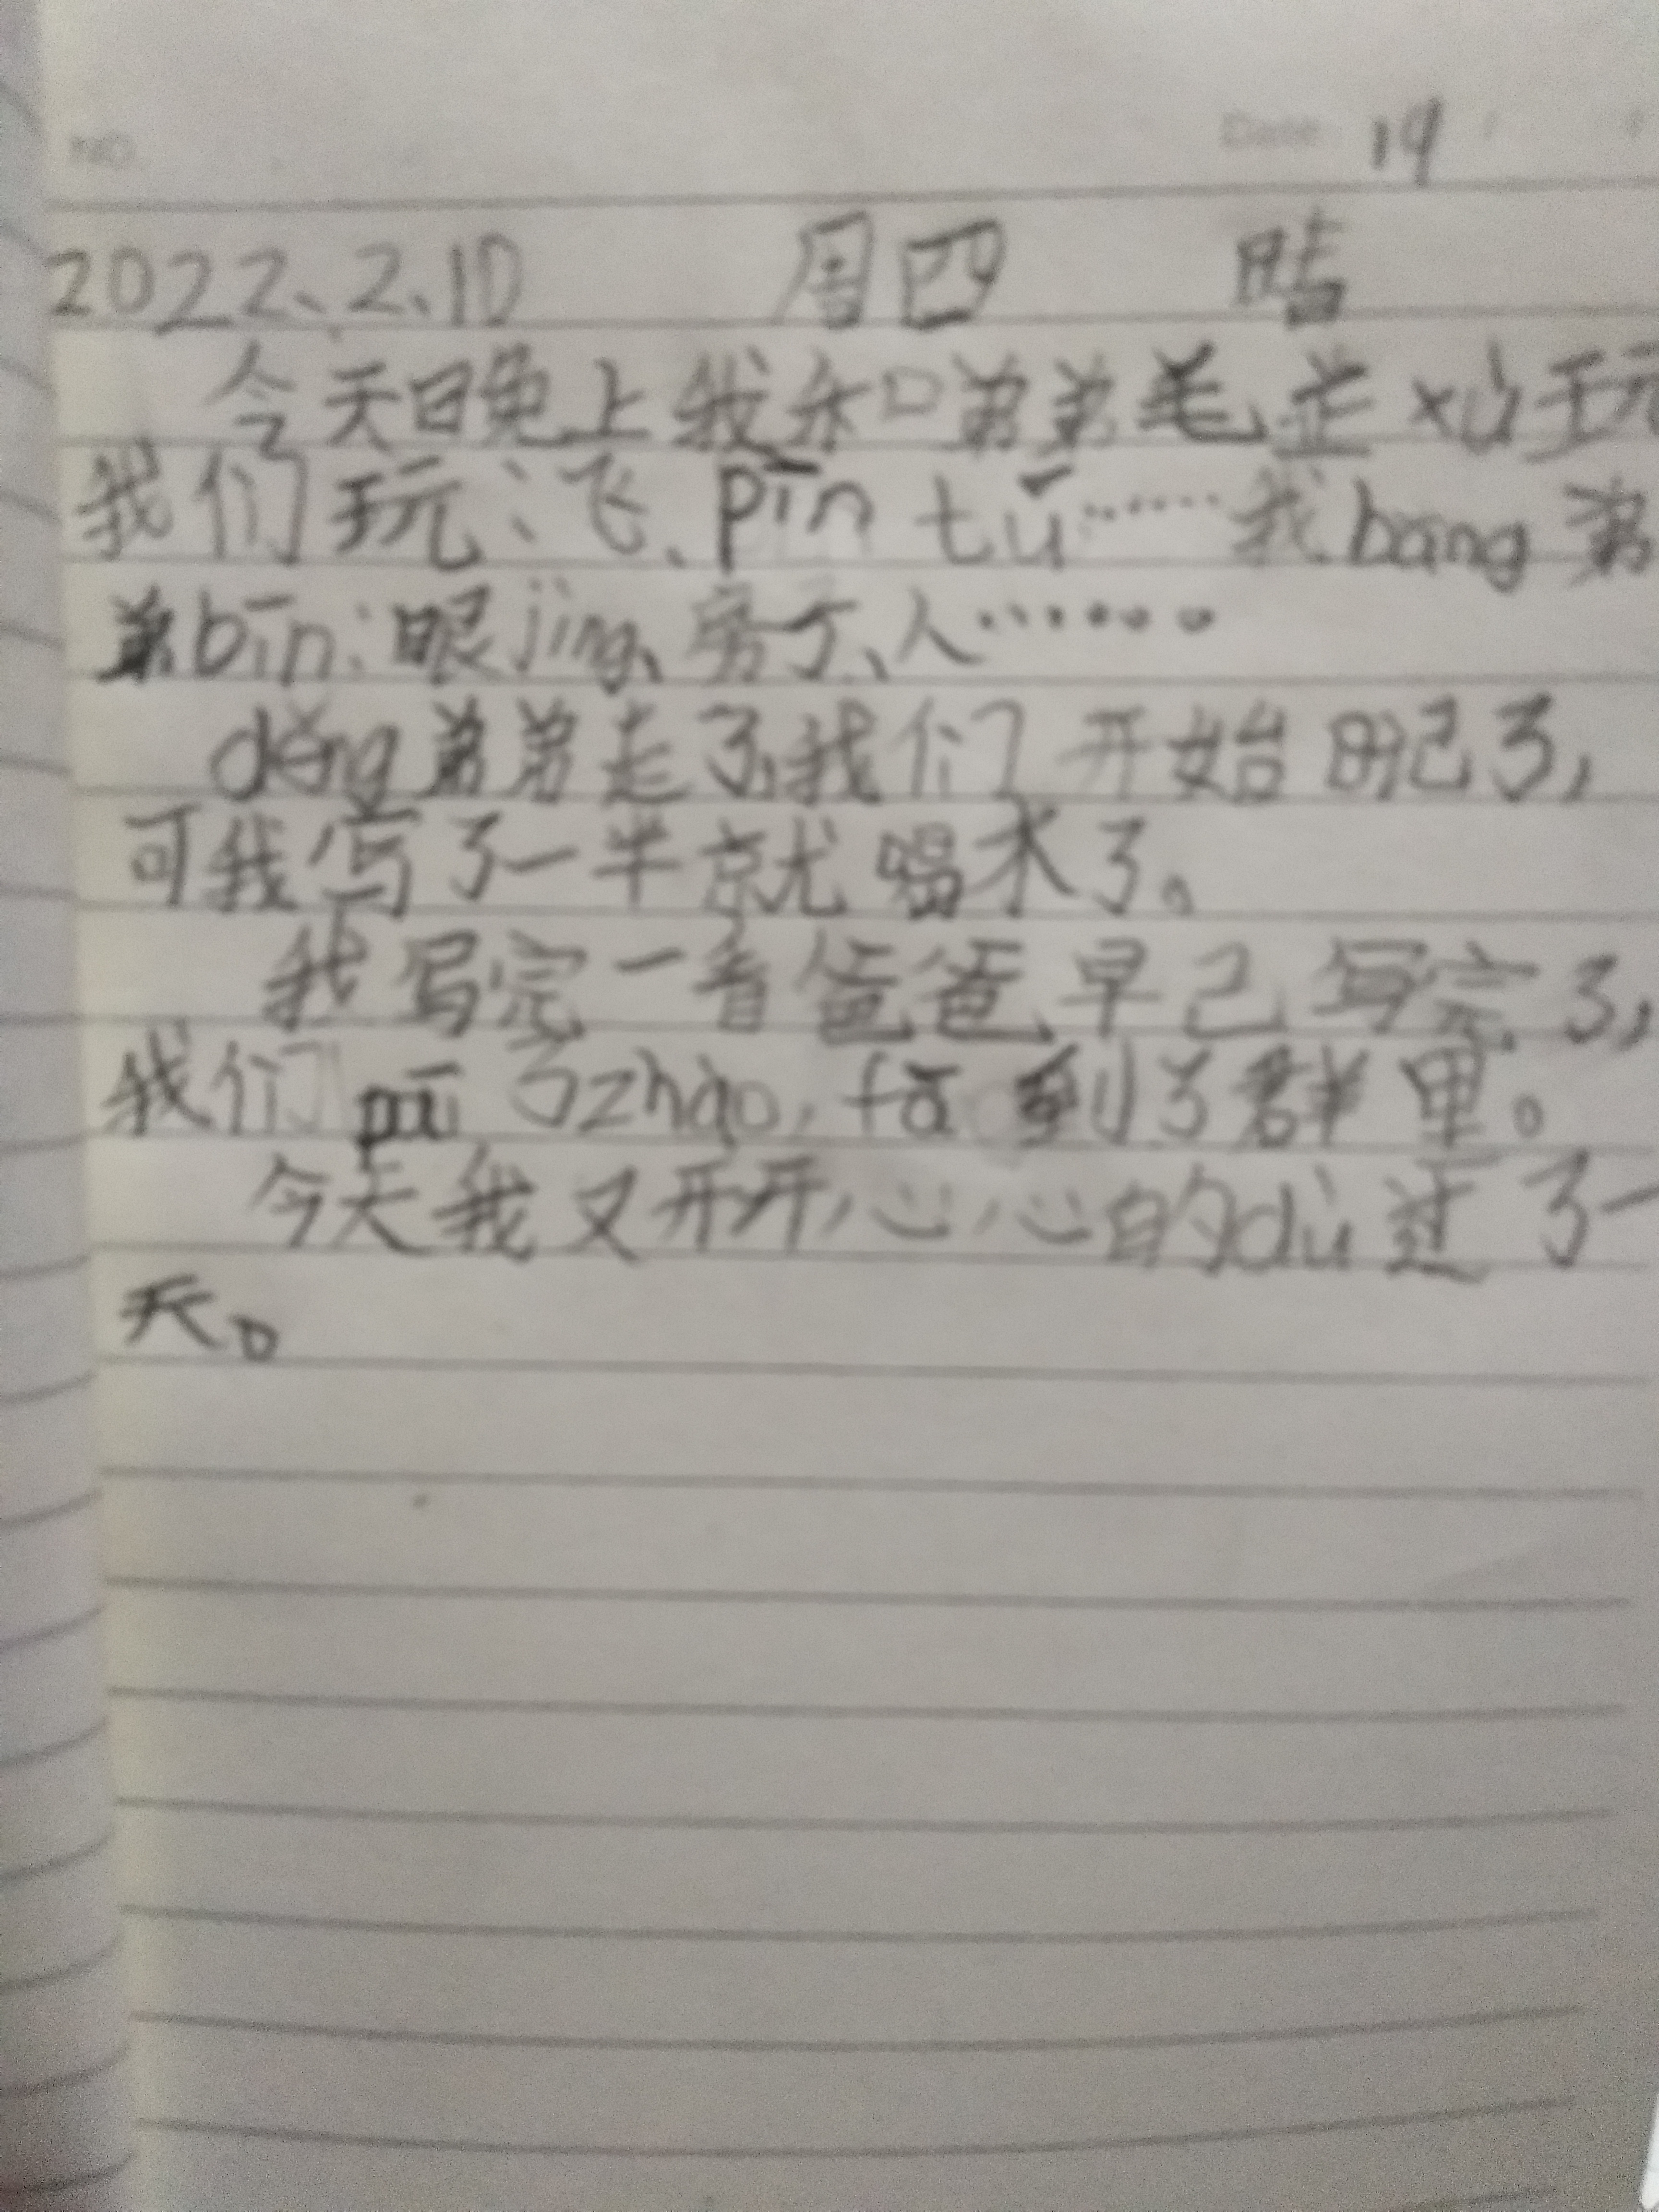 NO.
Date 19
2022、2、10 周四 晴
今天日晚上我和弟弟毛 xù玩
我们玩：飞、pīn tú……我bāng弟
弟bīn：眼jing、房子、人……。
děng弟弟走了,我们开始日记了,
可我写了一半就喝水了。
我写完一看爸爸早已写完了,
我们pāi了zhào,fā到了群里。
今天我又开开心心的dù过了一
天。